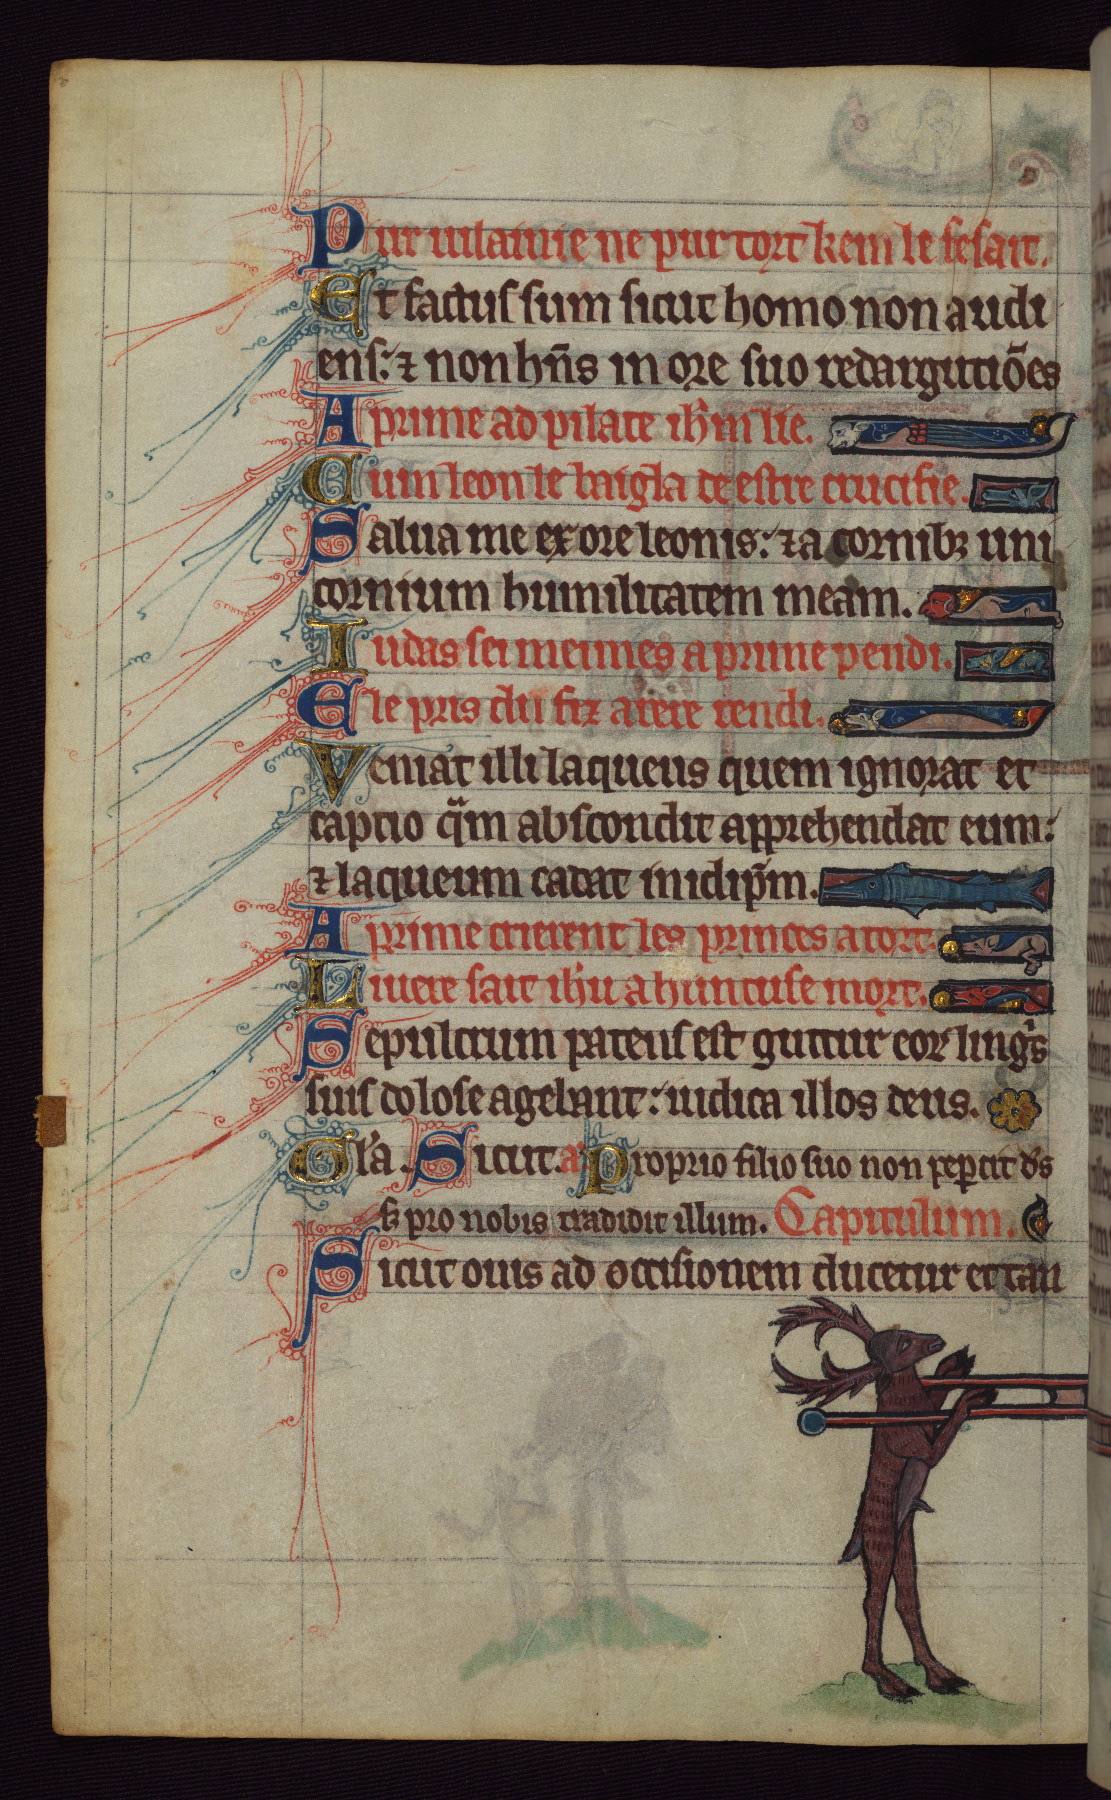 Pur uilainie ne pur tort kem le fesait.
Et factus sum sicut homo non audi
ens: ⁊ non hñs in ore suo redargutiões
A prime ad pilate ih̄m lie.
Cum leon le baigla de estre crucifie.
Salua me ex ore leonis: ⁊ a cornibꝫ uni
cornium humilitatem meam.
Iudas sei meimes a prime pendi.
E le pris du fiz arere rendi.
Veniat illi laqueus quem ignorat et
captio qᵃm abscondit apprehendat eum:
⁊ laqueum cadat in idip̄m.
A prime crierent les princes a tort.
Liuere fait ih̄u a huntuse mort.
Sepulcrum patens est guttur eoꝝ linguis
suis dolose agebant: iudica illos deus.
Gl'a. Sicut. a' Proprio filio suo non peꝑcit d's
s; pro nobis tradidit illum. Capitulum.
Sicut ouis ad occisionem ducetur et tan